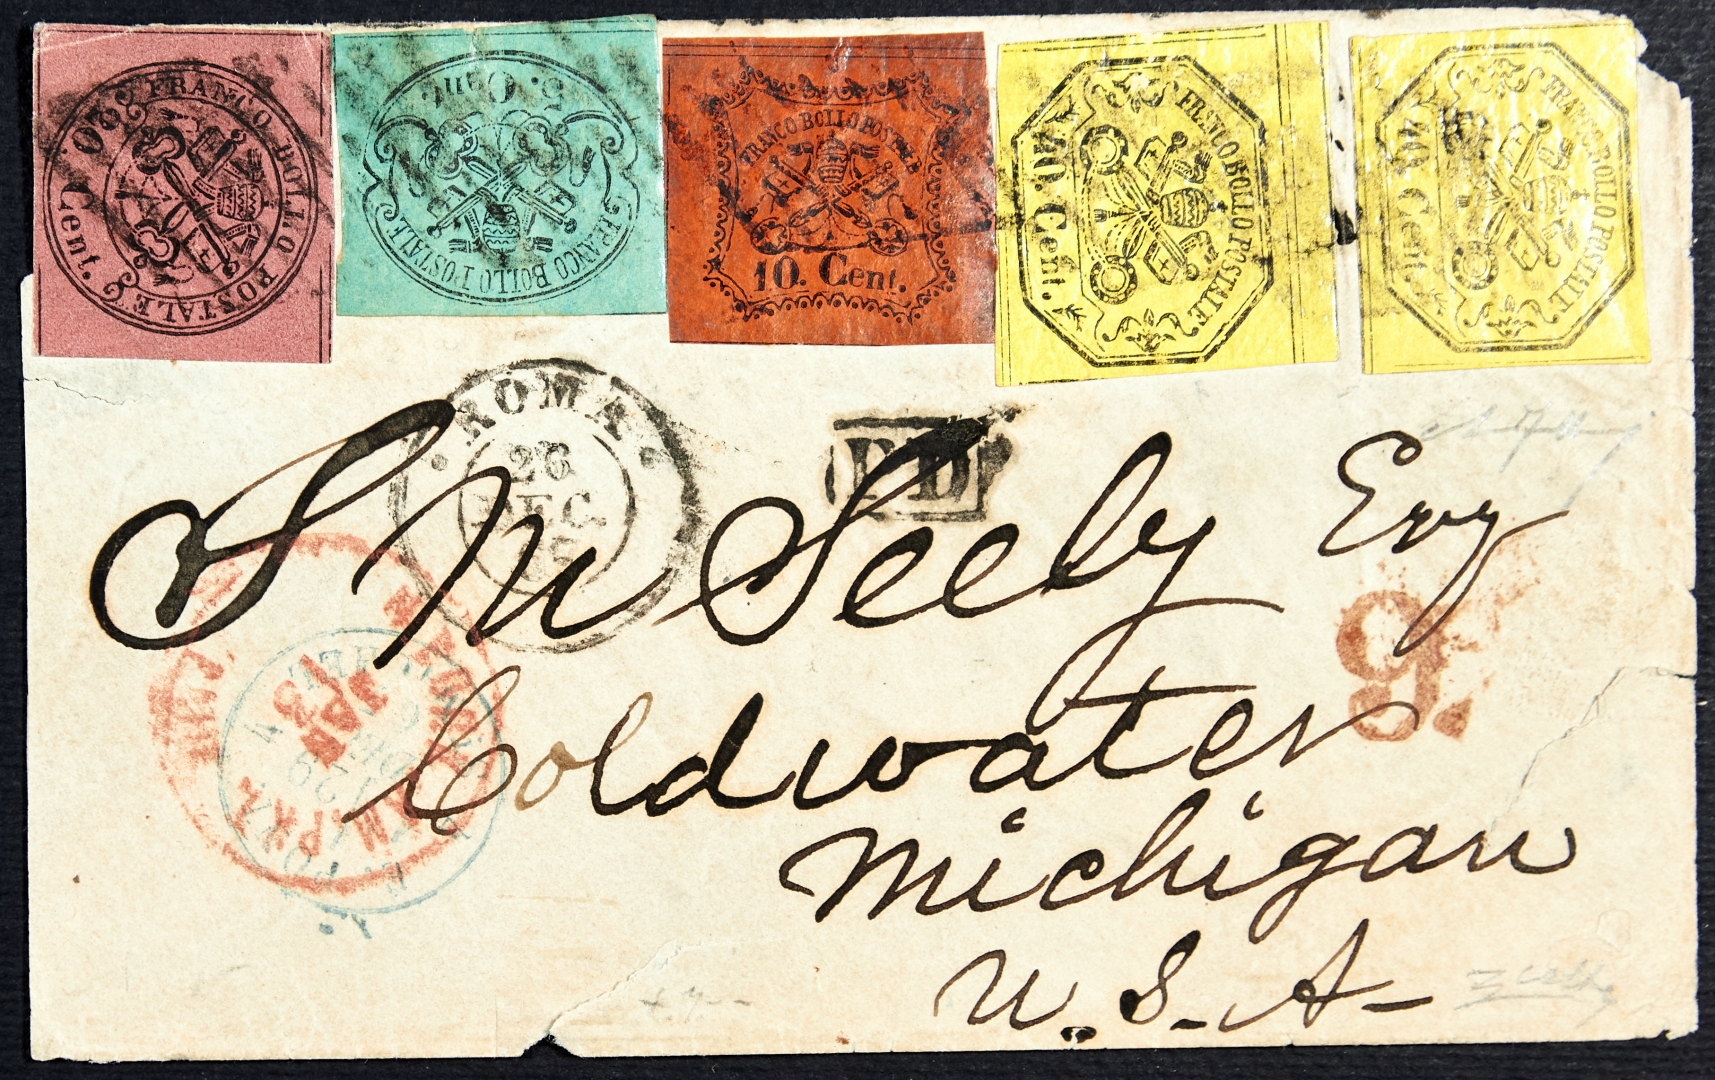 FRANCO BOLLO POSTALE
20. Cent.
FRANCO BOLLO POSTALE
5. Cent.
FRANCO BOLLO POSTALE
10. Cent.
FRANCO BOLLO POSTALE
40. Cent.
FRANCO BOLLO POSTALE
40. Cent.
ROMA
DEC.
PD
S M Seely Esq
9.
JAN
Coldwater
Michigan
U.S.A-